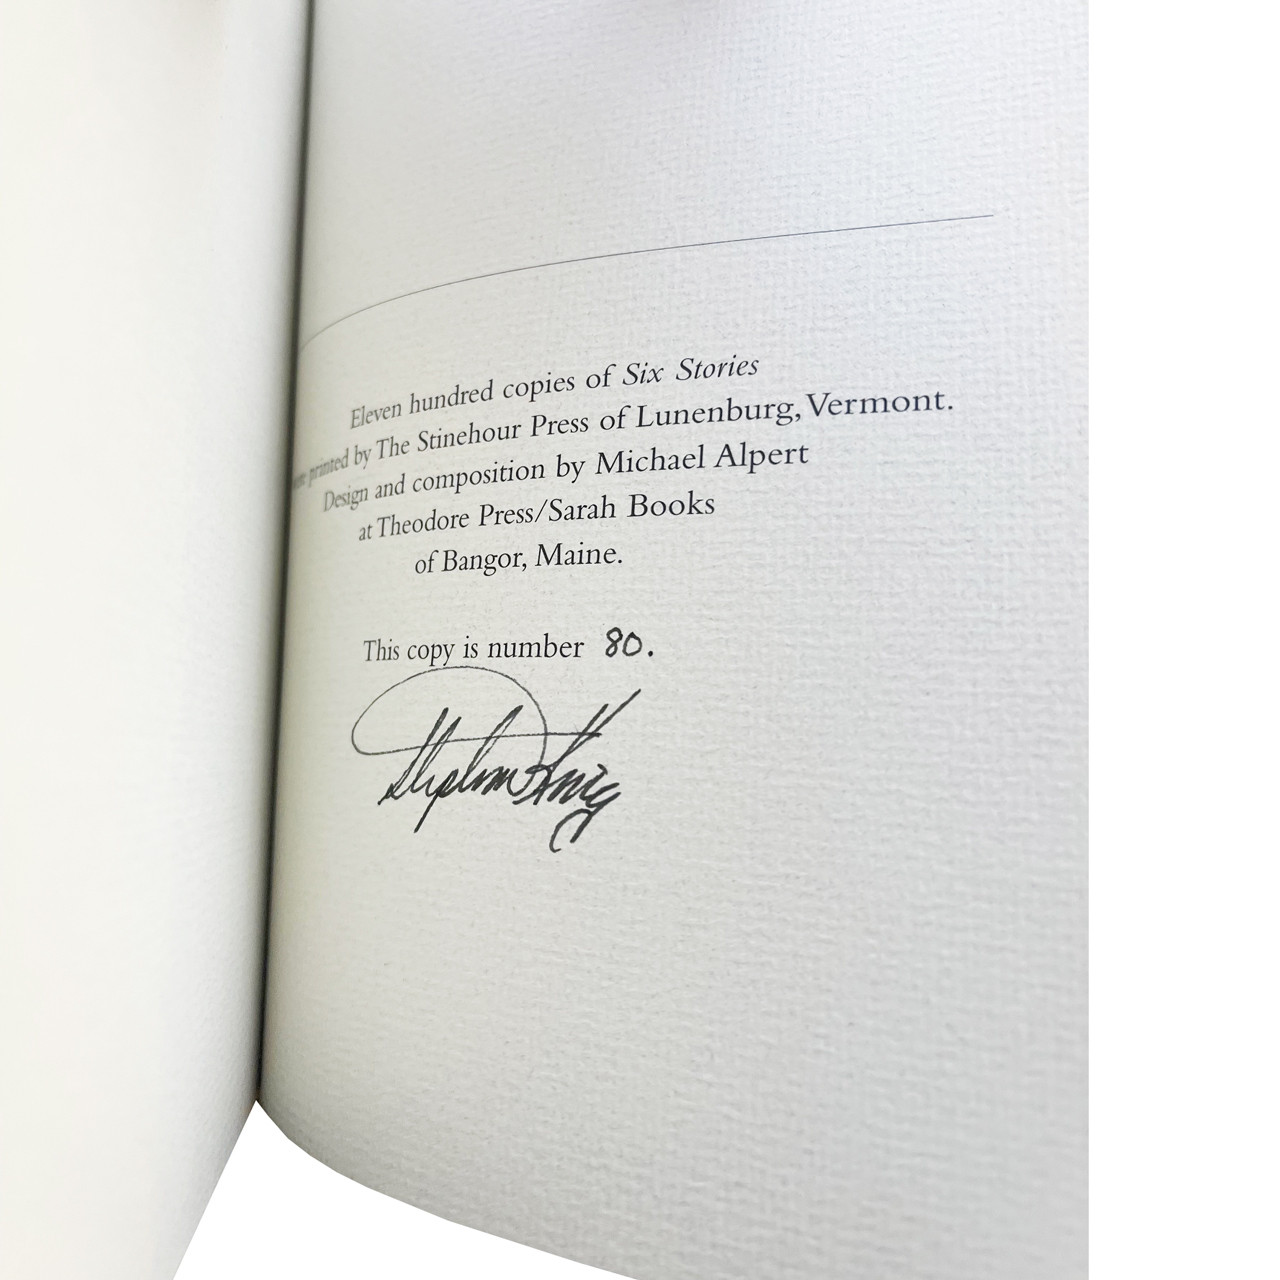 Eleven hundred copies of Six Stories
were printed by The Stinehour Press of Lunenburg, Vermont.
Design and composition by Michael Alpert
at Theodore Press/Sarah Books
of Bangor, Maine.
This copy is number 80.
Stephen King